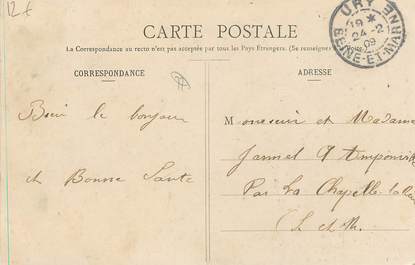 12 €
CARTE POSTALE
La Correspondance au recto n'est pas acceptée par tous les Pays Etrangers. (Se renseigner
CORRESPONDANCE
ADRESSE
URY
19 *
24 -2
09
SEINE-ET-MARNE
Bien le bonjour
et Bonne Santé
Monsieur et Madame
Jamet A
Par La Chapelle la
S et M.